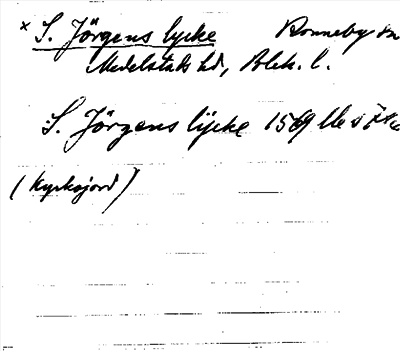 × S. Jörgens lycke Ronneby sn
Medelstads hd, Blek. l.
S. Jörgens lÿcke 1569
(Kyrkojord)